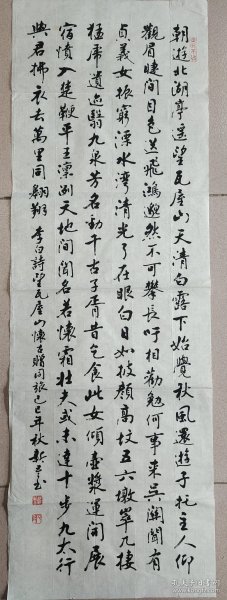 朝遊北湖亭遥望瓦屋山天清白露下始覺秋風還遊子托主人仰
觀眉睫間目色送飛鴻邈然不可攀長吁相勸勉何事來吳關聞有
貞義女振窮溧水灣清光了在眼白日如披顏高墳五六墩崒兀棲
猛虎遺迹翳九泉芳名動千古子胥昔乞食此女傾壺漿運開展
宿憤入楚鞭平王凛冽天地間聞名若懷霜壯夫或未達十步九太行
與君拂衣去萬里同翱翔 李白詩望瓦屋山懷古贈同旅己巳年秋新書